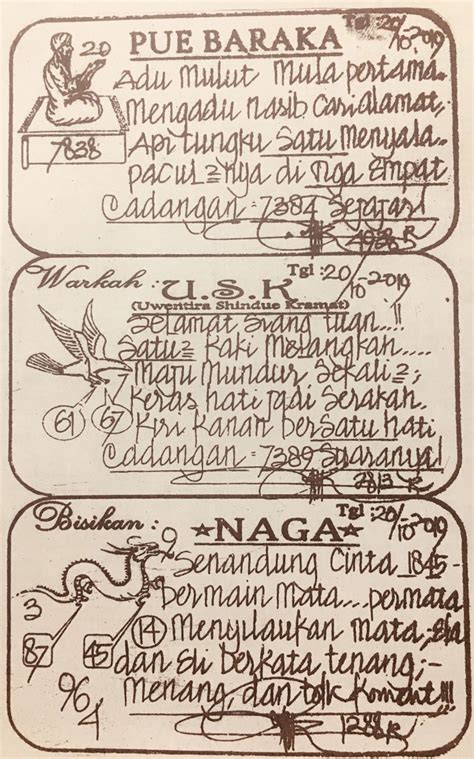 Tgl : 20/10-2019
20 PUE BARAKA
Adu Mulut Mula pertama
Mengadu nasib Cari alamat,
Api tungku Satu Menyala
7838
pacul2nya di Tiga Empat
Cadangan = 7384 Sejajar!
4938 R
Warkah : U.S.K
Tgl : 20/10-2019
(Uwentira Shindue Kramat)
Selamat Siang tuan....!!
Satu2 kaki Melangkah.....
Maju Mundur Sekali2;
61 67
keras hati jadi Serakah
Kiri Kanan berSatu hati
Cadangan = 7389 Suaranya!
2813 R
Bisikan : ★NAGA★
Tgl : 20/10-2019
9
Senandung Cinta 1845-
bermain Mata.... permata
3
14 Menyilaukan mata,
87 45
dan Eli berkata tenang;-
96 4
Menang, dan tdk Komat!!!
1288 R